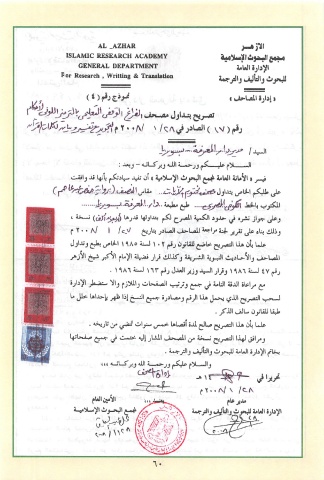 AL _AZHAR
ISLAMIC RESEARCH ACADEMY
GENERAL DEPARTMENT
For Research , Writting & Translation
الأزهر
مجمع البحوث الإسلامية
الإدارة العامة
للبحوث والتأليف والترجمة
( إدارة المصاحف )
نموذج رقم ( ٤ )
تصريح بتداول مصحف
رقم ( ١٧ ) الصادر في ٢٨ / ١ / ٢٠٠٨م
السيد / مدير دار المعرفة - بسوريا
السلام عليكم ورحمة الله وبركاته - وبعد :
تسر الأمانة العامة لمجمع البحوث الإسلامية أن تفيد سيادتكم بأنها قد وافقت
على طلبكم الخاص بتداول
المكتوب بالخط طبع مطبعة دار المعرفة بسوريا
وعلى جواز نشره في حدود الكمية المصرح لكم بتداولها قدرها نسخة
وذلك بناء على تقرير لجنة مراجعة المصاحف الصادر بتاريخ ٢٧ / ١ / ٢٠٠٨م
علما بأن هذا التصريح خاضع للقانون رقم ١٠٢ لسنة ١٩٨٥ الخاص بطبع وتداول
المصاحف والأحاديث النبوية الشريفة وكذلك قرار فضيلة الإمام الأكبر شيخ الأزهر
رقم ٤٧ لسنة ١٩٨٦ وقرار السيد وزير العدل رقم ١٦٣ لسنة ١٩٨٦ .
مع مراعاة الدقة التامة في جمع وترتيب الصفحات والملازم وإلا ستضطر الإدارة
لسحب التصريح الذي يحمل هذا الرقم ومصادرة جميع النسخ إذا ظهر بإحداها خلل ما
طبقا للقانون سالف الذكر .
علما بأن هذا التصريح صالح لمدة أقصاها خمس سنوات تمضي من تاريخه .
ومرافق لهذا التصريح نسخة من المصحف المشار إليه ختمت في جميع صفحاتها
بخاتم الإدارة العامة للبحوث والتأليف والترجمة .
والسلام عليكم ورحمة الله وبركاته ،،،
تحريرا في
٢٨ / ١ / ٢٠٠٨م
مدير عام
الإدارة العامة للبحوث والتأليف والترجمة
الأمين العام
لمجمع البحوث الإسلامية
٦٠